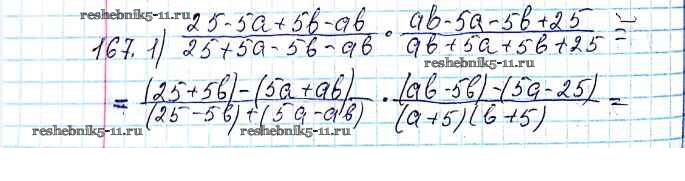 167. 1) (25-5a+5b-ab)/(25+5a-5b-ab) · (ab-5a-5b+25)/(ab+5a+5b+25) =
= ((25+5b)-(5a+ab))/((25-5b)+(5a-ab)) · ((ab-5b)-(5a-25))/((a+5)(b+5)) =
reshebnik5-11.ru
reshebnik5-11.ru
reshebnik5-11.ru
reshebnik5-11.ru